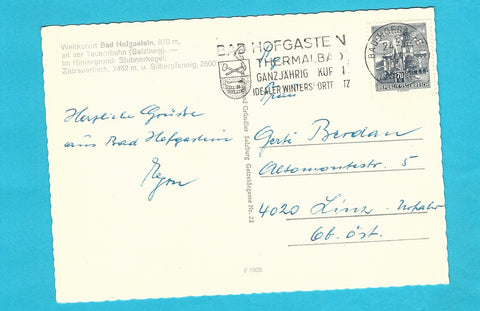 Weltkurort Bad Hofgastein, 870 m,
an der Tauernbahn (Salzburg). —
Im Hintergrund: Stubnerkogel,
Zitterauertisch, 2462 m. u. Silberpfennig, 2600
BAD HOFGASTEIN
THERMALBAD
GANZJÄHRIG KUR
IDEALER WINTERSPORTPLATZ
BAD HOFGASTEIN
REPUBLIK ÖSTERREICH
Herzliche Grüße
aus Bad Hofgastein
Frau
Gerti Berdan
Altomontestr. 5
4020 Linz - Urfahr
Ob. Öst.
Gründler Salzburg Getreidegasse Nr. 22
F 1508